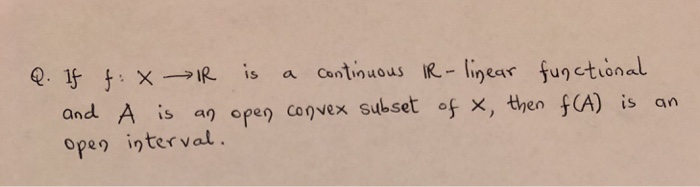 Q. If f: X → IR is a continuous IR-linear functional
and A is an open convex subset of X, then f(A) is an
open interval.